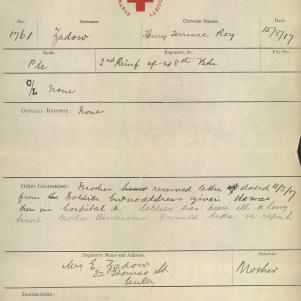 No.
Surname.
Christian Names.
Date.
1761
Zadow
Henry Terrence Roy
15/8/17
Rank.
Regiment, &c.
File No.
Pte
2nd Reinf of 48th Bttn
C/L None
OFFICIAL REPORTS: None
Other Information: Mother received letter dated 11/3/17
from the Soldier but no address given He was
then in hospital Soldier has been ill a long
time Mother Anxious would like a report
Inquirer's Name and Address.
Relation.
Mrs E. Zadow
Thomas St
Unley
Mother
Instructions: